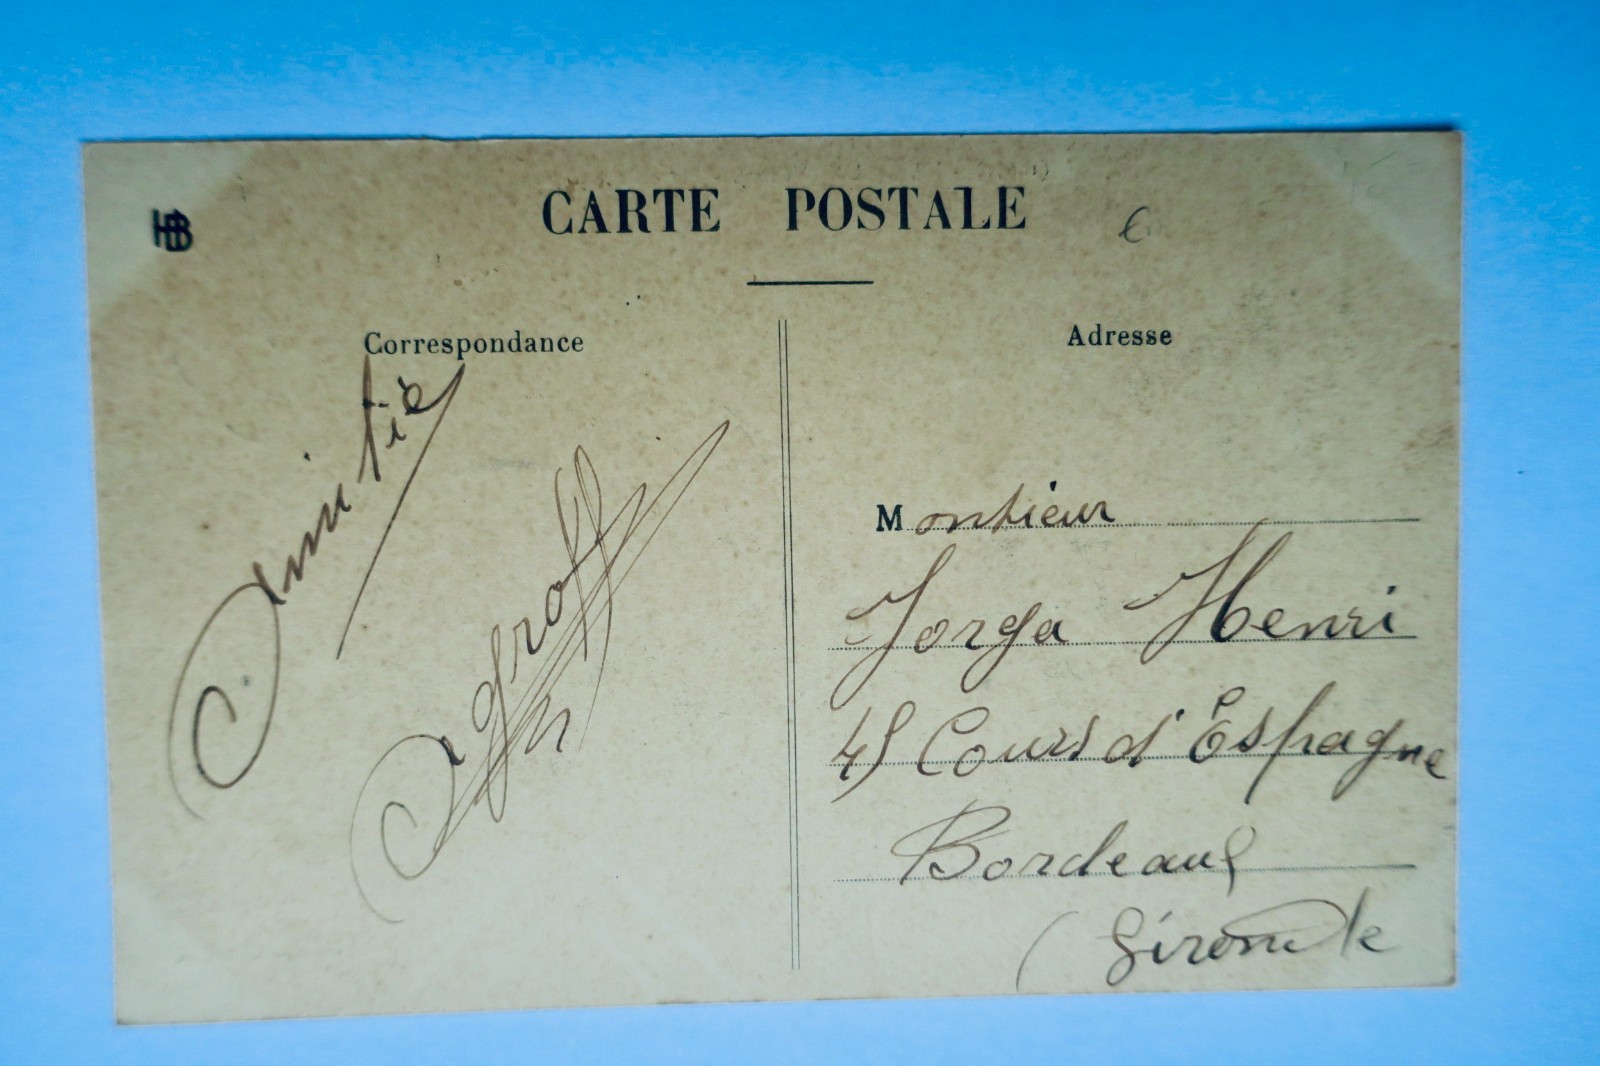 HB
CARTE POSTALE
6
Correspondance
Adresse
Amitié
Monsieur
Jorga Henri
45 Cours d'Espagne
Bordeaux
(Gironde